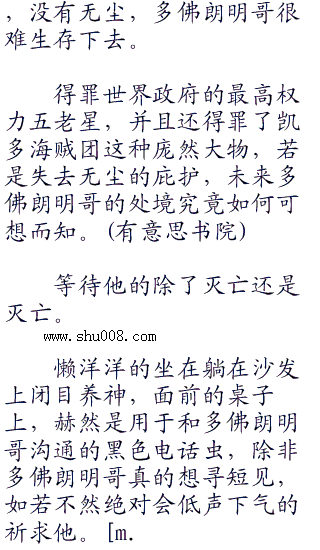 ，没有无尘，多佛朗明哥很
难生存下去。
得罪世界政府的最高权
力五老星，并且还得罪了凯
多海贼团这种庞然大物，若
是失去无尘的庇护，未来多
佛朗明哥的处境究竟如何可
想而知。(有意思书院)
等待他的除了灭亡还是
灭亡。
www.shu008.com
懒洋洋的坐在躺在沙发
上闭目养神，面前的桌子
上，赫然是用于和多佛朗明
哥沟通的黑色电话虫，除非
多佛朗明哥真的想寻短见，
如若不然绝对会低声下气的
祈求他。[m.